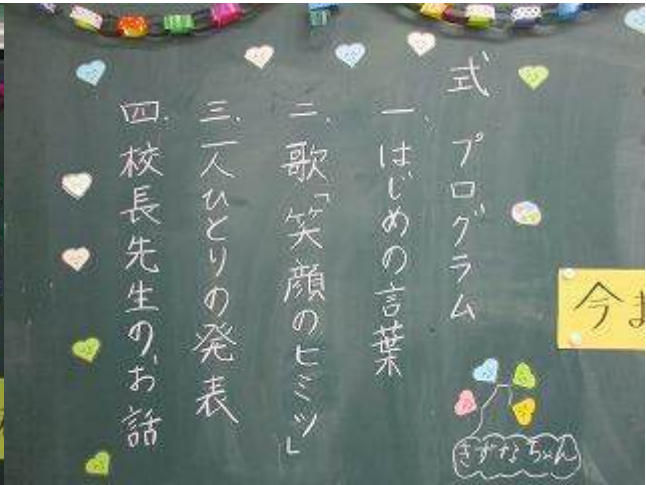 式 プログラム
一、はじめの言葉
二、歌「笑顔のヒミツ」
三、一人ひとりの発表
四、校長先生の、お話
きずなちゃん
今